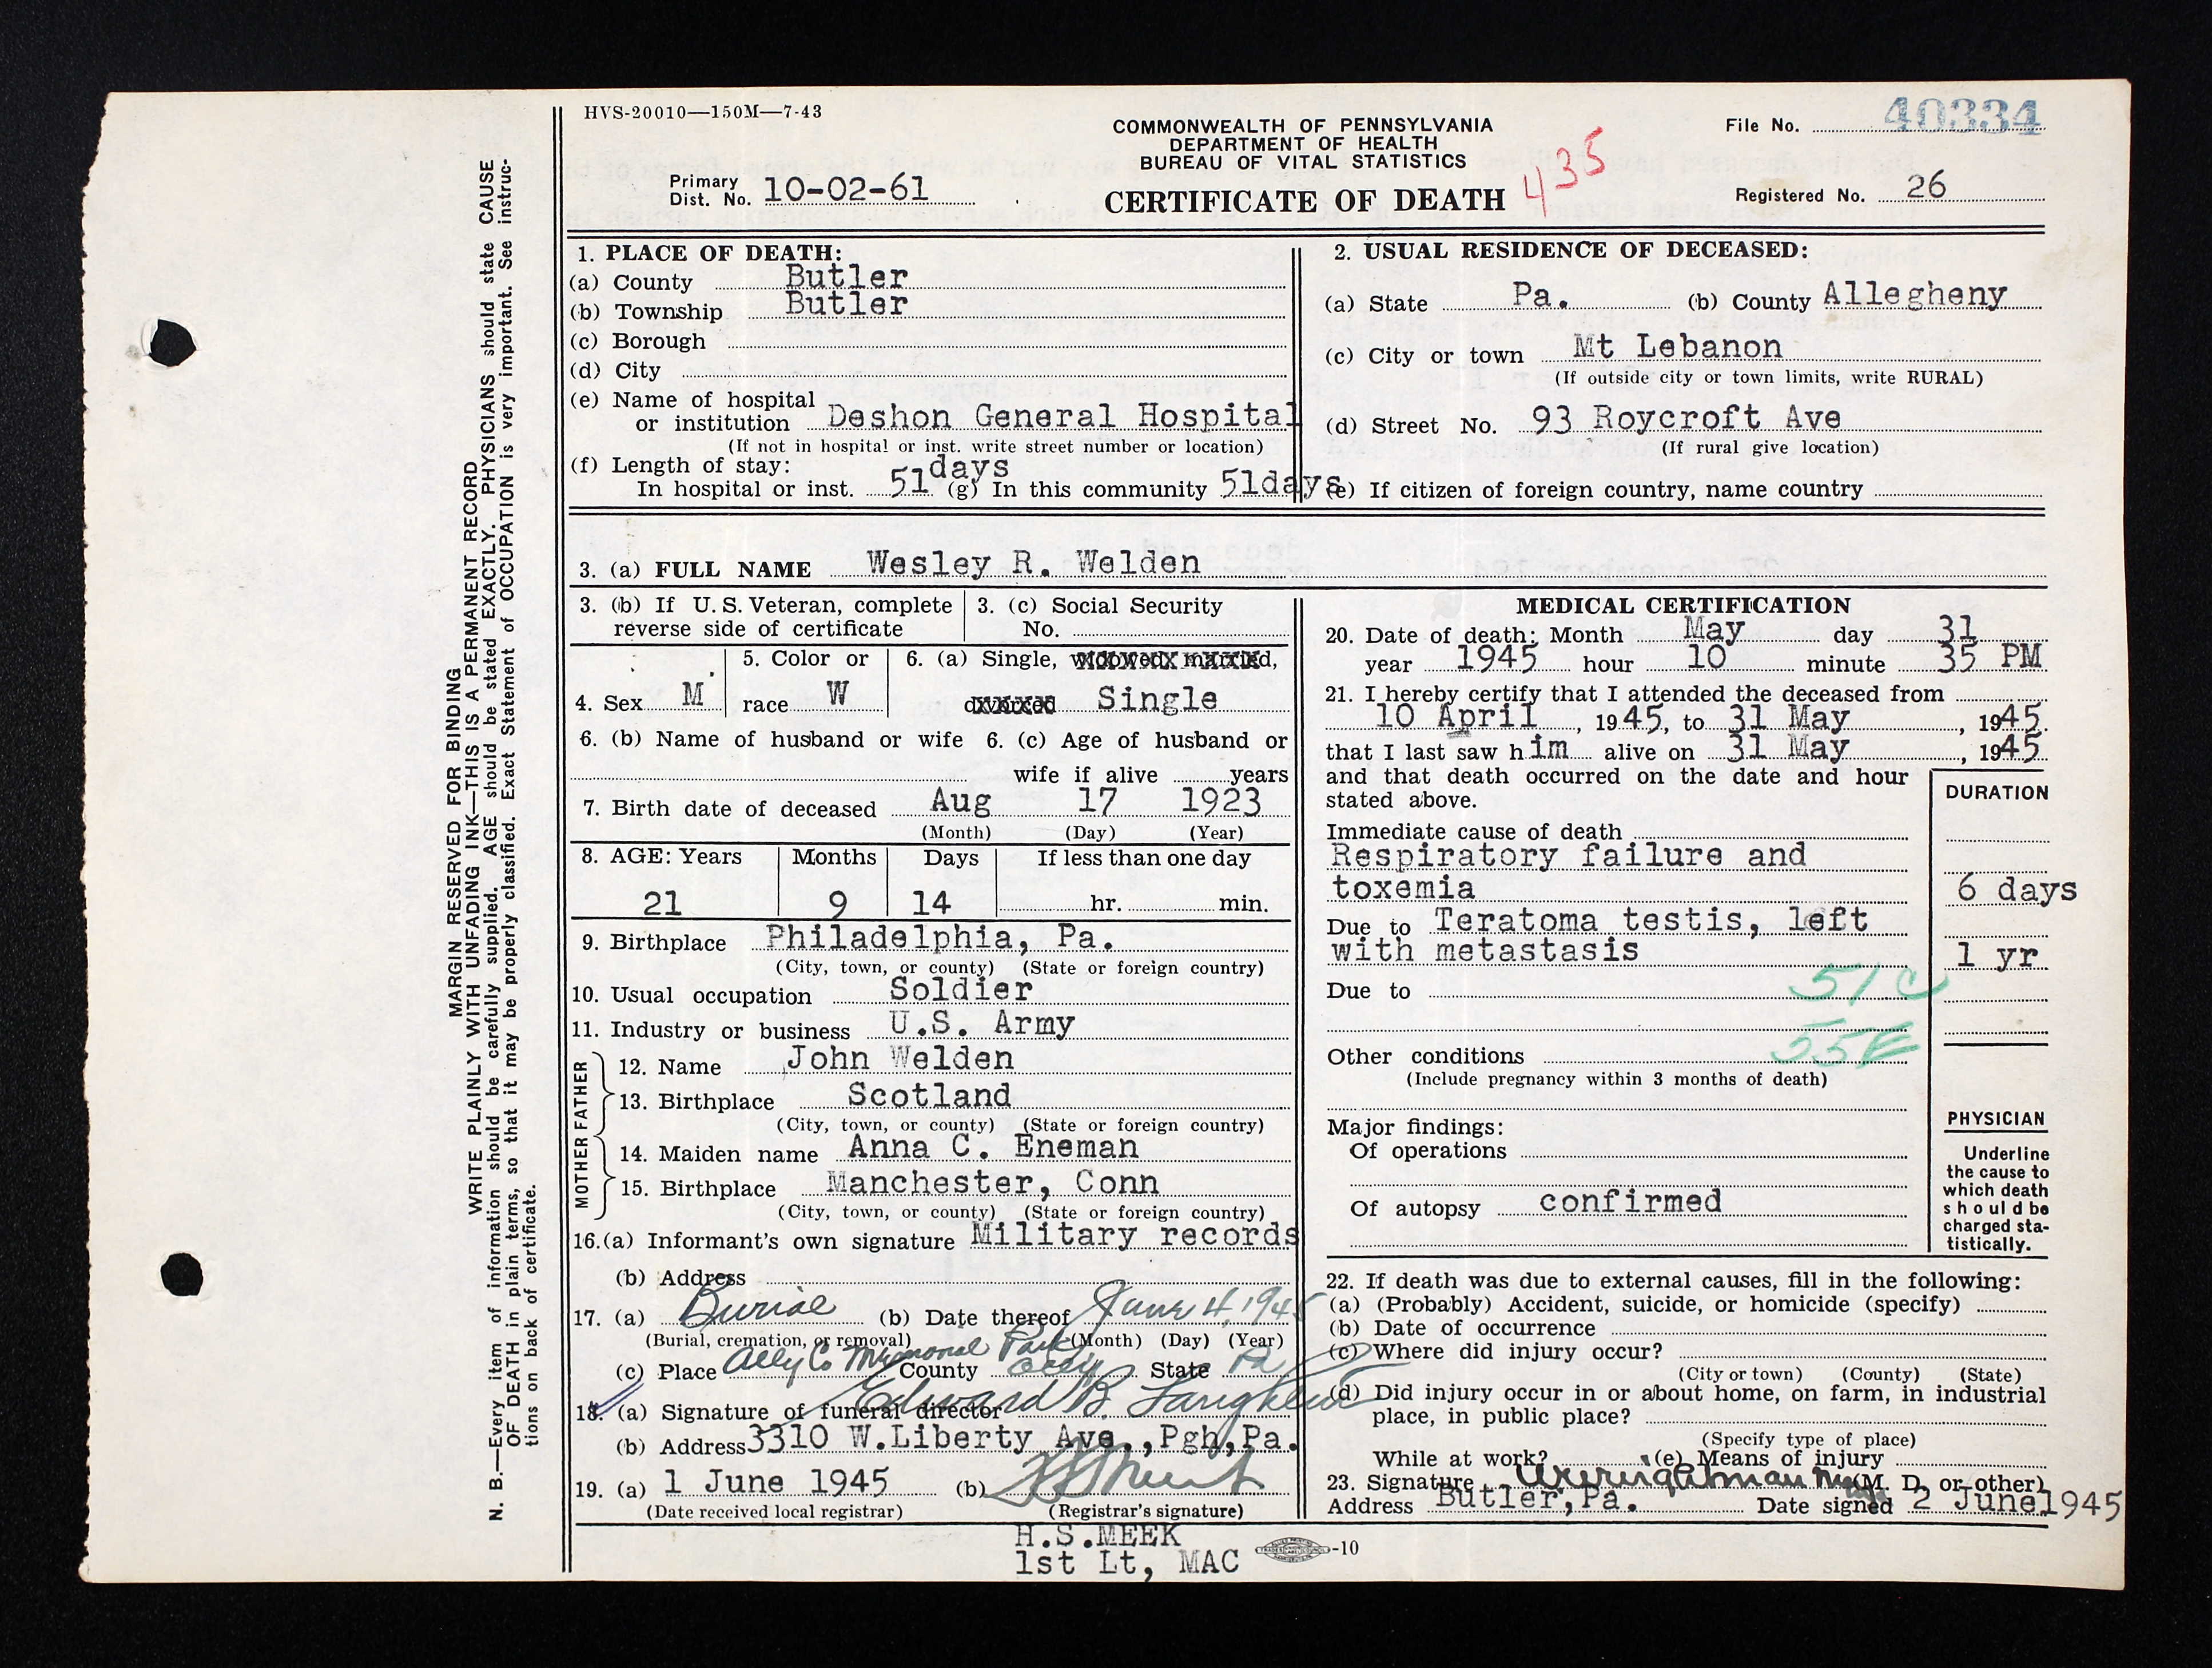 HVS-20010—150M—7-43
COMMONWEALTH OF PENNSYLVANIA
DEPARTMENT OF HEALTH
BUREAU OF VITAL STATISTICS
CERTIFICATE OF DEATH
435
File No. 40334
Primary Dist. No. 10-02-61
Registered No. 26
MARGIN RESERVED FOR BINDING
WRITE PLAINLY WITH UNFADING INK—THIS IS A PERMANENT RECORD
N. B.—Every item of information should be carefully supplied. AGE should be stated EXACTLY. PHYSICIANS should state CAUSE
OF DEATH in plain terms, so that it may be properly classified. Exact Statement of OCCUPATION is very important. See instruc-
tions on back of certificate.
1. PLACE OF DEATH:
(a) County Butler
(b) Township Butler
(c) Borough
(d) City
(e) Name of hospital
or institution Deshon General Hospital
(If not in hospital or inst. write street number or location)
(f) Length of stay:
In hospital or inst. 51 days (g) In this community 51days
2. USUAL RESIDENCE OF DECEASED:
(a) State Pa. (b) County Allegheny
(c) City or town Mt Lebanon
(If outside city or town limits, write RURAL)
(d) Street No. 93 Roycroft Ave
(If rural give location)
(e) If citizen of foreign country, name country
3. (a) FULL NAME Wesley R. Welden
3. (b) If U. S. Veteran, complete
reverse side of certificate
3. (c) Social Security
No.
4. Sex M
5. Color or
race W
6. (a) Single, widowed, married,
divorced Single
6. (b) Name of husband or wife
6. (c) Age of husband or
wife if alive years
7. Birth date of deceased Aug 17 1923
(Month) (Day) (Year)
8. AGE: Years Months Days If less than one day
21 9 14 hr. min.
9. Birthplace Philadelphia, Pa.
(City, town, or county) (State or foreign country)
10. Usual occupation Soldier
11. Industry or business U.S. Army
FATHER
12. Name John Welden
13. Birthplace Scotland
(City, town, or county) (State or foreign country)
MOTHER
14. Maiden name Anna C. Eneman
15. Birthplace Manchester, Conn
(City, town, or county) (State or foreign country)
16.(a) Informant's own signature Military records
(b) Address
17. (a) Burial (b) Date thereof June 4, 1945
(Burial, cremation, or removal) (Month) (Day) (Year)
(c) Place Ally Co Memorial Park County Ally State Pa
18. (a) Signature of funeral director Edward B.
(b) Address 3310 W.Liberty Ave.,Pgh,Pa.
19. (a) 1 June 1945 (b)
(Date received local registrar) (Registrar's signature)
H.S.MEEK
1st Lt, MAC
MEDICAL CERTIFICATION
20. Date of death: Month May day 31
year 1945 hour 10 minute 35 PM
21. I hereby certify that I attended the deceased from
10 April, 1945, to 31 May, 1945
that I last saw him alive on 31 May, 1945
and that death occurred on the date and hour
stated above.
DURATION
Immediate cause of death
Respiratory failure and
toxemia 6 days
Due to Teratoma testis, left
with metastasis 1 yr
Due to 51 c
55E
Other conditions
(Include pregnancy within 3 months of death)
Major findings:
Of operations
Of autopsy confirmed
PHYSICIAN
Underline
the cause to
which death
should be
charged sta-
tistically.
22. If death was due to external causes, fill in the following:
(a) (Probably) Accident, suicide, or homicide (specify)
(b) Date of occurrence
(c) Where did injury occur?
(City or town) (County) (State)
(d) Did injury occur in or about home, on farm, in industrial
place, in public place?
(Specify type of place)
While at work? (e) Means of injury
23. Signature (M. D. or other)
Address Butler,Pa. Date signed 2 June1945
-10